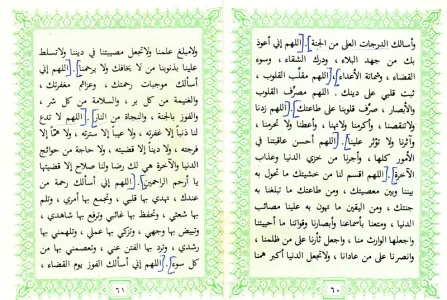 وأسألك الدرجات العلى من الجنة]. [اللهم إني أعوذ
بك من جهد البلاء ، ودرك الشقاء ، وسوء
القضاء ، وشماتة الأعداء]. [اللهم مقلّب القلوب ،
ثبت قلبي على دينك . اللهم مصرّف القلوب
والأبصار ، صرّف قلوبنا على طاعتك]. [اللهم زدنا
ولاتنقصنا ، وأكرمنا ولاتهنا ، وأعطنا ولا تحرمنا ،
وآثرنا ولا تؤثر علينا]. [اللهم أحسن عاقبتنا في
الأمور كلها ، وأجرنا من خزي الدنيا وعذاب
الآخرة]. [اللهم اقسم لنا من خشيتك ما تحول به
بيننا وبين معصيتك ، ومن طاعتك ما تبلغنا به
جنتك ، ومن اليقين ما تهون به علينا مصائب
الدنيا ، ومتعنا بأسماعنا وأبصارنا وقواتنا ما أحييتنا
واجعلها الوارث منا ، واجعل ثأرنا على من ظلمنا ،
وانصرنا على من عادانا ، ولاتجعل الدنيا أكبر همنا
٦٠
ولامبلغ علمنا ولاتجعل مصيبتنا في ديننا ولاتسلط
علينا بذنوبنا من لا يخافك ولا يرحمنا]. [اللهم إني
أسألك موجبات رحمتك ، وعزائم مغفرتك ،
والغنيمة من كل بر ، والسلامة من كل شر ،
والفوز بالجنة ، والنجاة من النار]. [اللهم لا تدع
لنا ذنباً إلا غفرته ، ولا عيباً إلا سترته ، ولا همّاً إلا
فرجته ، ولا ديناً إلا قضيته ، ولا حاجة من حوائج
الدنيا والآخرة هي لك رضا ولنا صلاح إلا قضيتها
يا أرحم الراحمين]. [اللهم إني أسألك رحمة من
عندك ، تهدي بها قلبي ، وتجمع بها أمري ، وتلم
بها شعثي ، وتحفظ بها غائبي وترفع بها شاهدي ،
وتبيض بها وجهي ، وتزكي بها عملي ، وتلهمني بها
رشدي ، وترد بها الفتن عني ، وتعصمني بها من
كل سوء]. [اللهم إني أسألك الفوز يوم القضاء ،
٦١